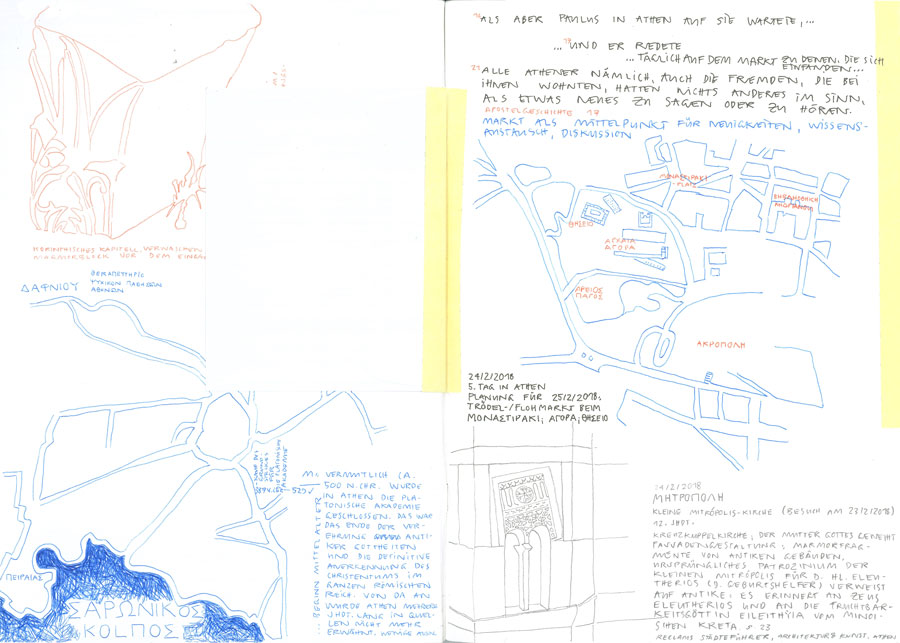 KORINTHISCHES KAPITELL, VERWASCHEN
MARMORBLOCK VOR DEM
ΔΑΦΝΙΟΥ
ΘΕΡΑΠΕΥΤΗΡΙΟ
ΨΥΧΙΚΩΝ ΠΑΘΗΣΕΩΝ
ΑΘΗΝΩΝ
ΠΕΙΡΑΙΑΣ
ΣΑΡΩΝΙΚΟΣ
ΚΟΛΠΟΣ
BEGINN MITTELALTER
VERMUTLICH CA.
500 N. CHR. WURDE
IN ATHEN DIE PLA-
TONISCHE AKADEMIE
GESCHLOSSEN. DAS WAR
DAS ENDE DER VER-
EHRUNG ANTI-
KER GOTTHEITEN
UND DIE DEFINITIVE
ANERKENNUNG DES
CHRISTENTUMS IM
GANZEN RÖMISCHEN
REICH. VON DA AN
WURDE ATHEN MEHRERE
JHDT. LANG IN QUEL-
LEN NICHT MEHR
ERWÄHNT.
16 ALS ABER PAULUS IN ATHEN AUF SIE WARTETE,...
...UND ER REDETE
...TÄGLICH AUF DEM MARKT ZU DENEN, DIE SICH
EINFANDEN...
21 ALLE ATHENER NÄMLICH, AUCH DIE FREMDEN, DIE BEI
IHNEN WOHNTEN, HATTEN NICHTS ANDERES IM SINN,
ALS ETWAS NEUES ZU SAGEN ODER ZU HÖREN.
APOSTELGESCHICHTE 17
MARKT ALS MITTELPUNKT FÜR NEUIGKEITEN, WISSENS-
AUSTAUSCH, DISKUSSION
ΜΟΝΑΣΤΙΡΑΚΙ
-PLATZ
ΘΗΣΕΙΟ
ΑΓΟΡΑ
ΑΡΕΙΟΣ
ΠΑΓΟΣ
ΑΚΡΟΠΟΛΗ
24/2/2018
5. TAG IN ATHEN
PLANUNG FÜR 25/2/2018:
TRÖDEL-/FLOHMARKT BEIM
ΜΟΝΑΣΤΙΡΑΚΙ; ΑΓΟΡΑ; ΘΗΣΕΙΟ
24/2/2018
ΜΗΤΡΟΠΟΛΗ
KLEINE MITRÓPOLIS-KIRCHE (BESUCH AM 23/2/2018)
12. JHDT.
KREUZKUPPELKIRCHE, DER MUTTER GOTTES GEWEIHT
FASSADENGESTALTUNG: MARMORFRAG-
MENTE VON ANTIKEN GEBÄUDEN,
URSPRÜNGLICHES PATROZINIUM DER
KLEINEN MITRÓPOLIS FÜR D. HL. ELEU-
THERIOS (D. GEBURTSHELFER) VERWEIST
AUF ANTIKE: ES ERINNERT AN ZEUS
ELEUTHERIOS UND AN DIE FRUCHTBAR-
KEITSGÖTTIN EILEITHYIA VOM MINOI-
SCHEN KRETA S 23
RECLAMS STÄDTEFÜHRER, ARCHITEKTUR & KUNST, ATHEN